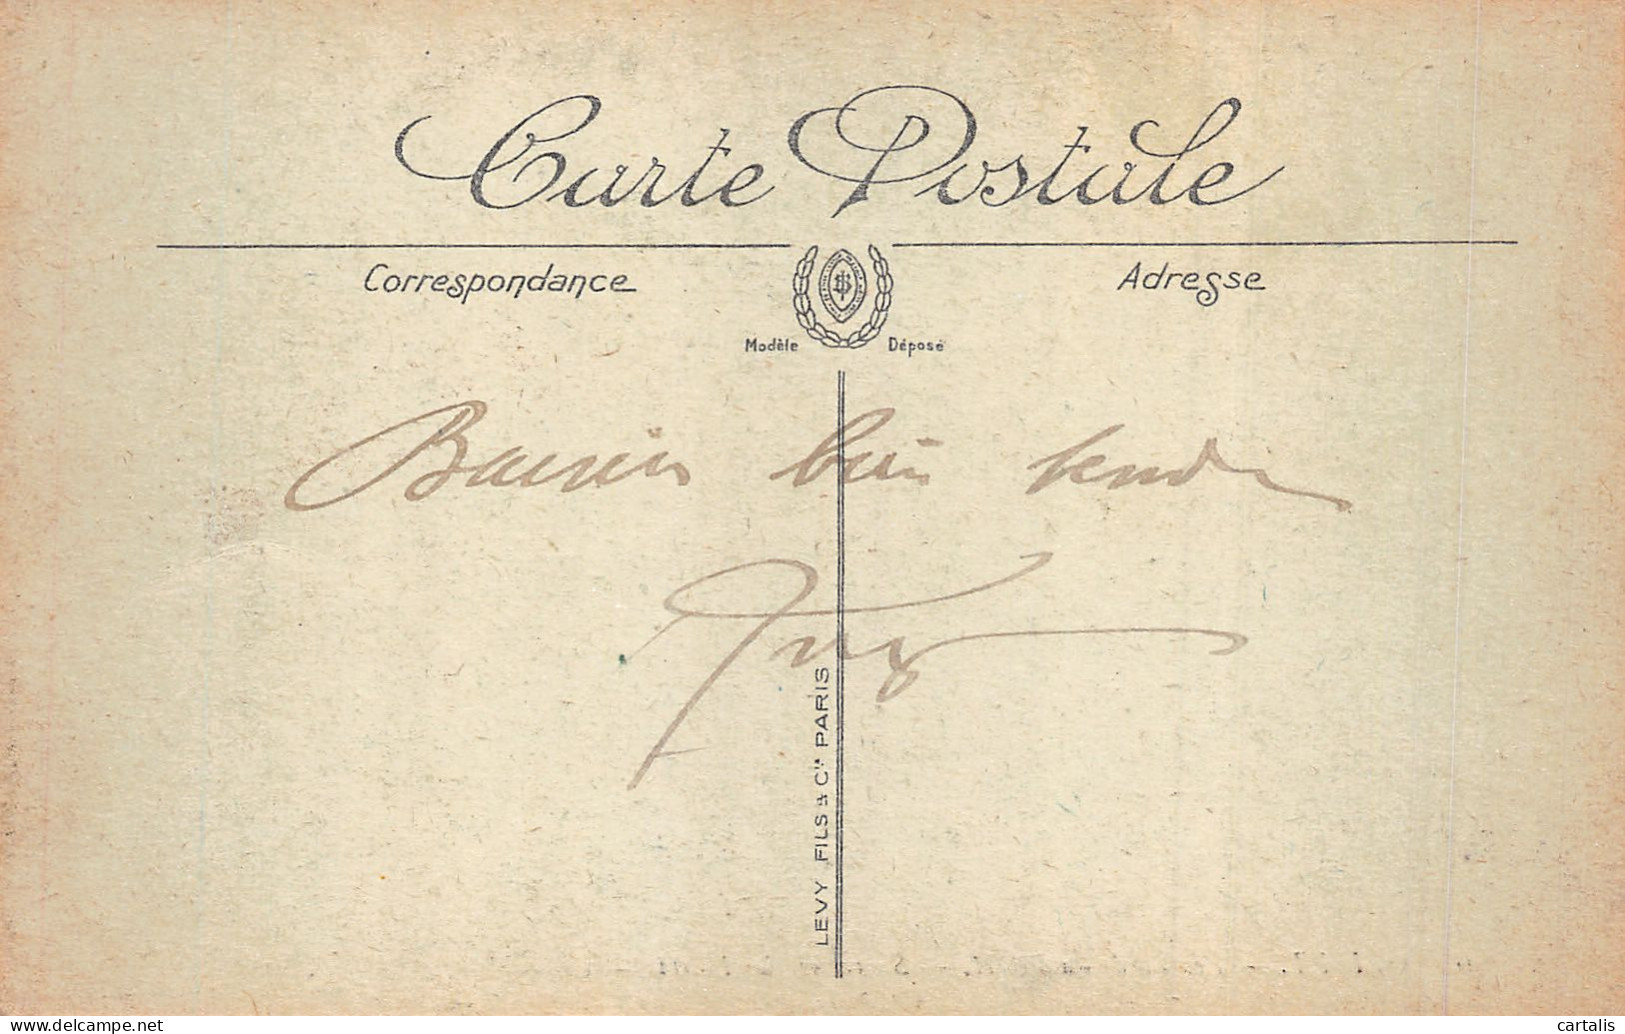 Carte Postale
Correspondance
Adresse
Modèle Déposé
Baisers bien tendres
LEVY FILS & Cie PARIS
delcampe.net
cartalis